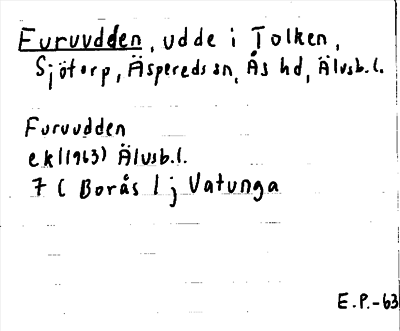 Furuvdden, udde i Tolken,
Sjötorp, Äspereds sn, Ås hd, Älvsb.l.
Furuudden
ek (1963) Älvsb.l.
7 C Borås 1 j Vatunga
E.P.-63